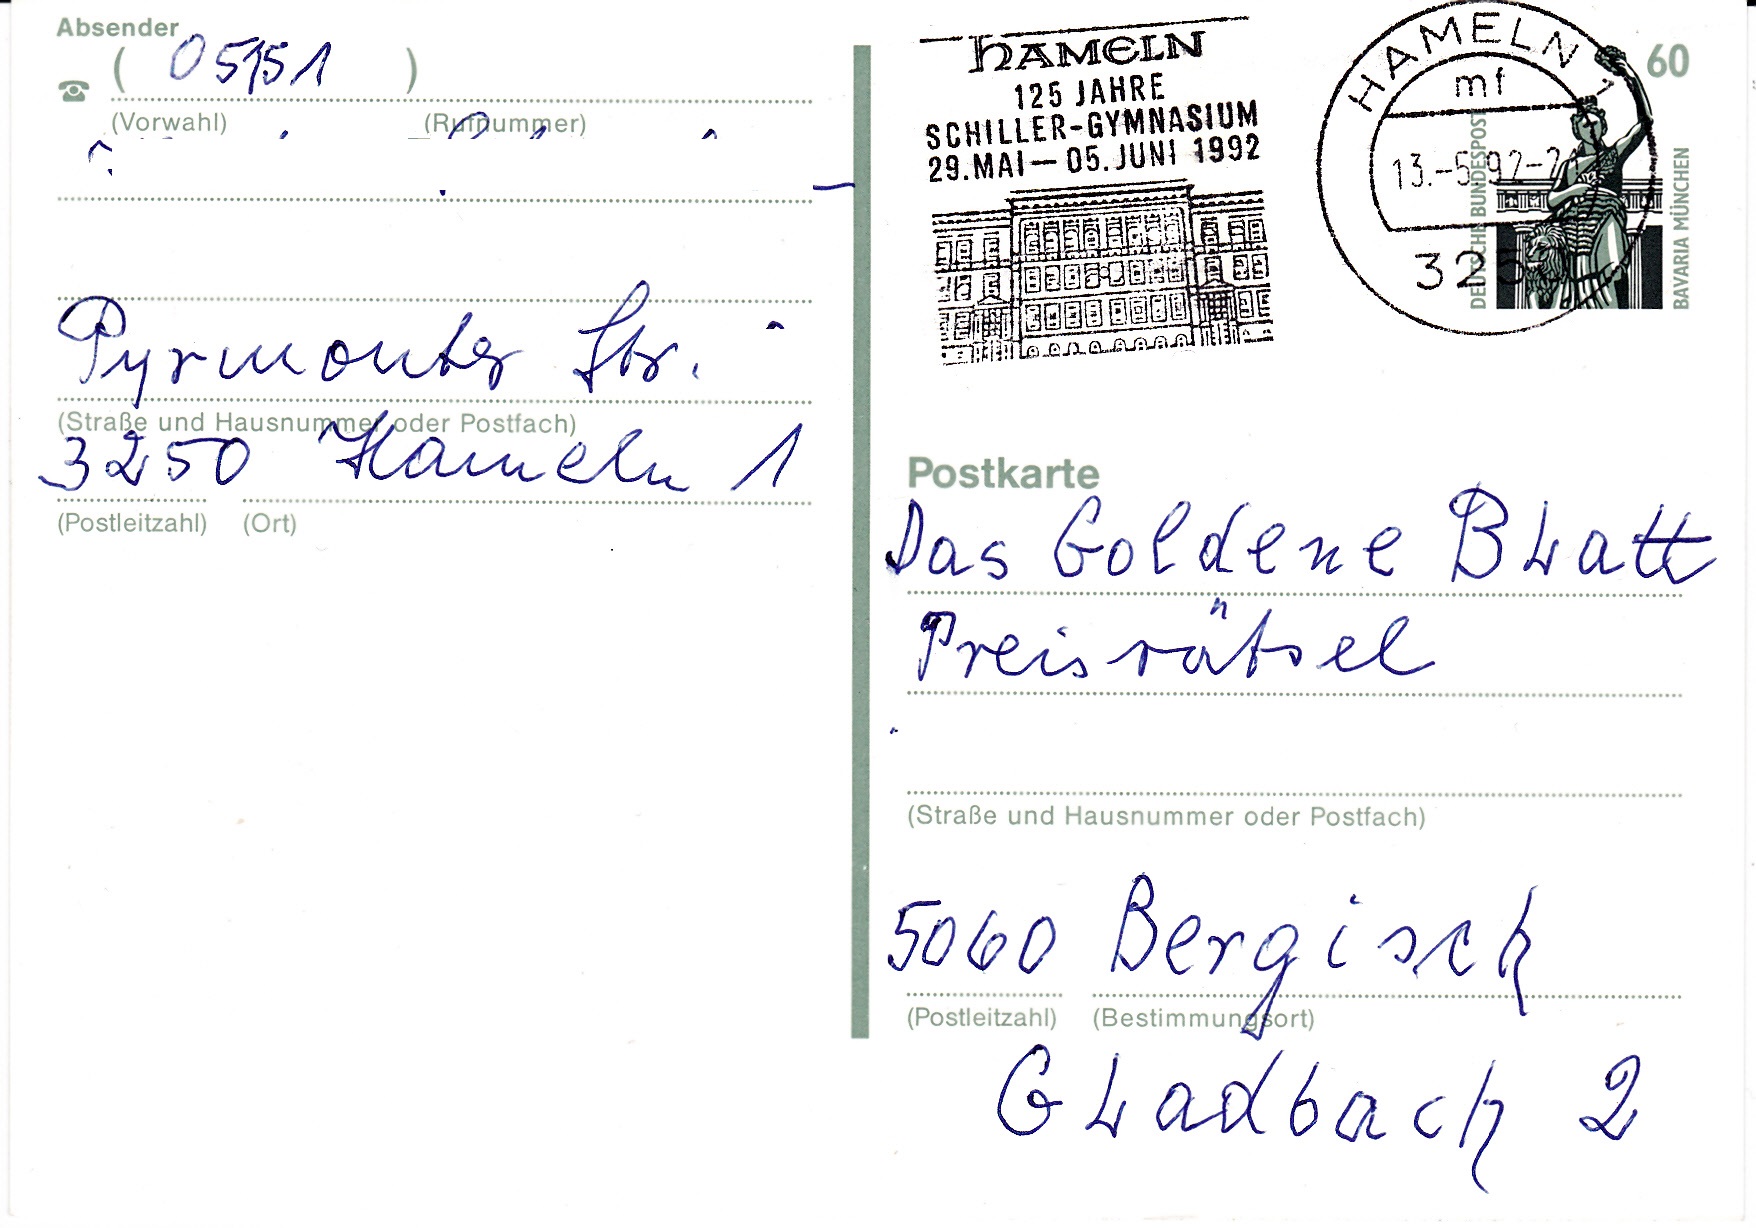 Absender
( 05151 )
(Vorwahl) (Rufnummer)
Pyrmonter Str.
(Straße und Hausnummer oder Postfach)
3250 Hameln 1
(Postleitzahl) (Ort)
HAMELN
125 JAHRE
SCHILLER-GYMNASIUM
29. MAI — 05. JUNI 1992
HAMELN 1
mf
13.-5.92-
325
60
DEUTSCHE BUNDESPOST
BAVARIA MÜNCHEN
Postkarte
Das Goldene Blatt
Preisrätsel
(Straße und Hausnummer oder Postfach)
5060 Bergisch
(Postleitzahl) (Bestimmungsort)
Gladbach 2